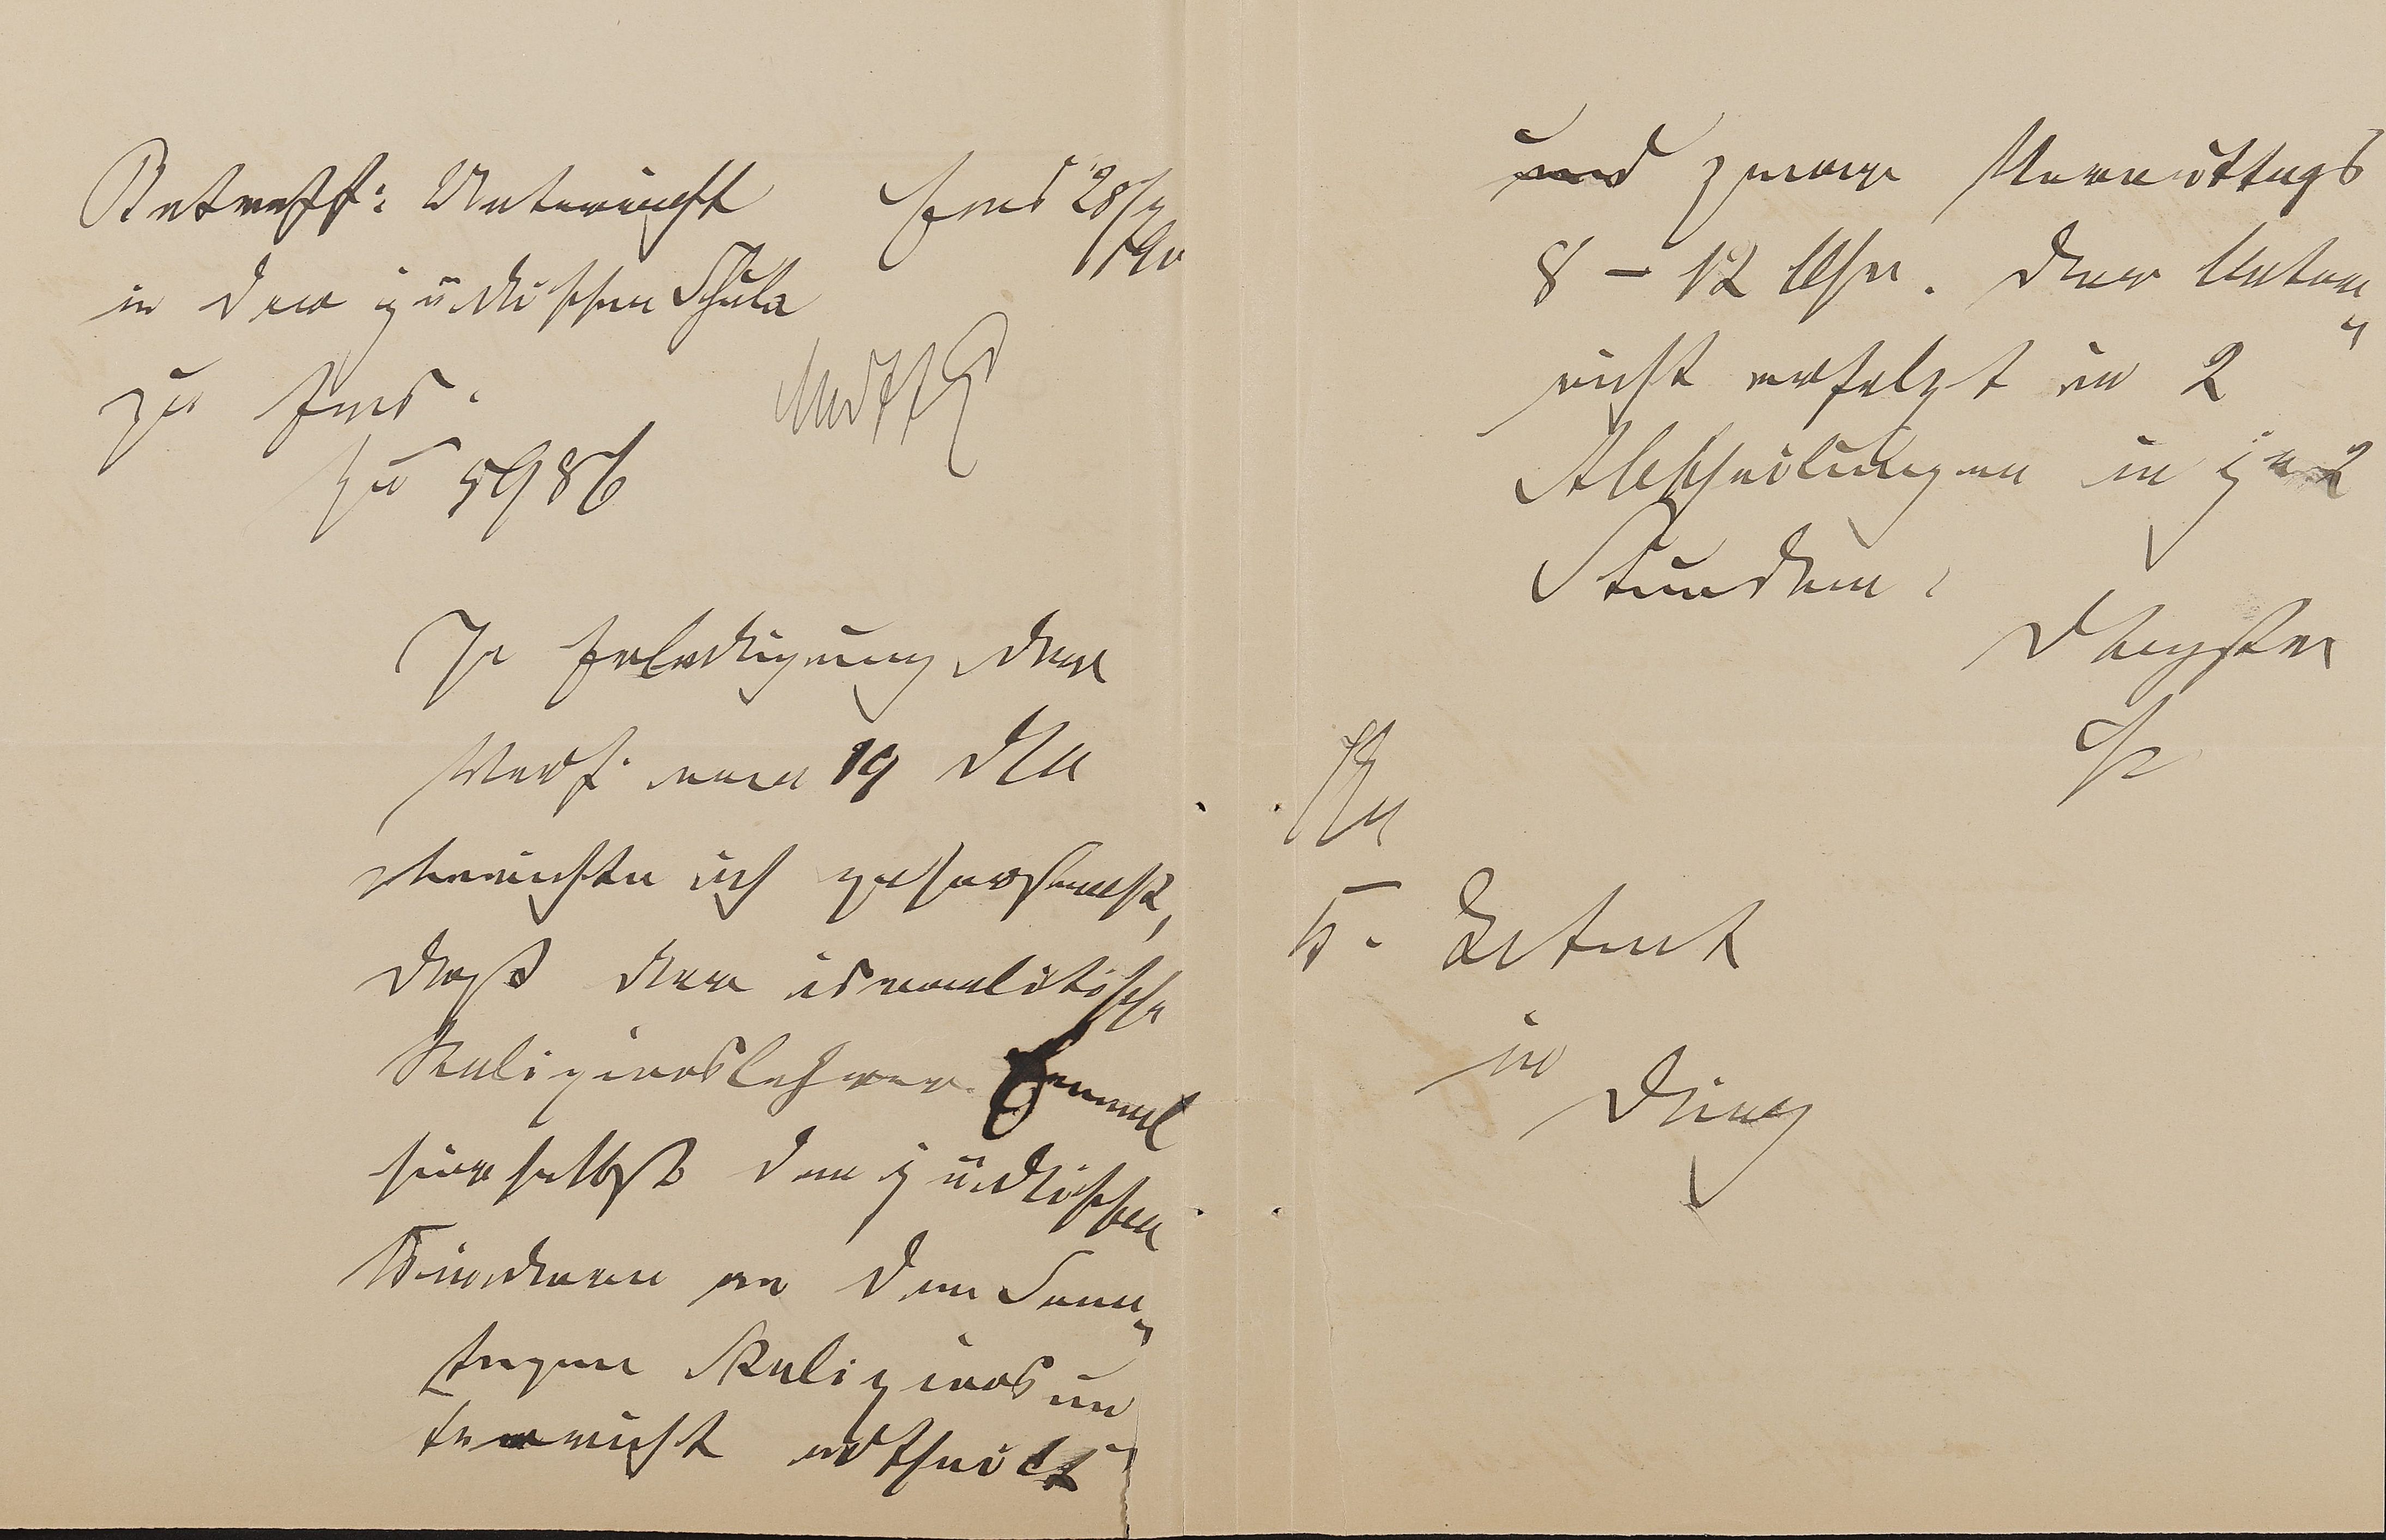 Betreff: Unterricht
in der jüdischen Schule
zu Ems.
Ems 28/7
90
zu 5986
In Erledigung der
Verf. vom 19 d M
berichte ich gehorsamst,
daß der israelitische
Religionslehrer
hierselbst den jüdischen
Kindern an den Sonn„
tagen Religionsun
terricht ertheilt
und zwar Vormittags
8 – 12 Uhr. Der Unter„
richt erfolgt in 2
Abtheilungen in je 2
Stunden.
An
K.
in